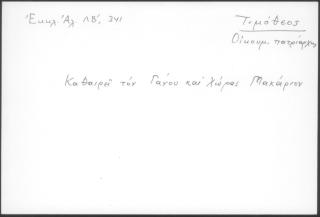 Ἐκκλ. Ἀλ. ΛΒ', 341
Τιμόθεος
Οἰκουμ. πατριάρχης
Καθαιρεῖ τόν Γάνου καί Χώρας Μακάριον